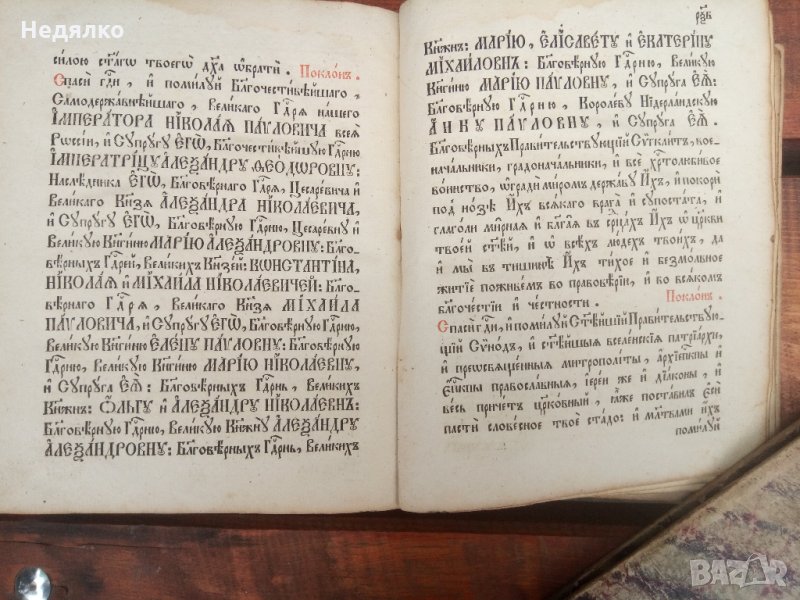 Недялко
силою ст҃агѡ твоегѡ дх҃а ѡ҆брати̑. Поклонъ.
Спаси̑ гдⷭ҇и, и҆ поми́лꙋй Благочести́вѣйшаго,
Самодержа́внѣйшаго, Вели́каго Гдⷭ҇рѧ на́шего
І҆МПЕРА́ТОРА НІКОЛА́Ѧ ПА́VЛОВИЧА всеѧ̀
Рѡссі́и, и҆ Сꙋпрꙋ́гꙋ Е҆ГѠ̀, Благочести́вѣйшꙋю Гдⷭ҇рню
І҆МПЕРАТРИ́Цꙋ А҆ЛЕѮА́НДРꙋ Ѳ҆ЕО́ДѠРОВНꙋ:
Наслѣ́дника Е҆ГѠ̀, Благовѣ́рнаго Гдⷭ҇рѧ, Цесаре́вича и҆
Вели́каго Кнѧ́зѧ А҆ЛЕѮА́НДРА НІКОЛА́ЕВИЧА,
и҆ Сꙋпрꙋ́гꙋ Е҆ГѠ̀, Благовѣ́рнꙋю Гдⷭ҇рню, Цесаре́внꙋ и҆
Вели́кꙋю Кнѧги́ню МАРІ́Ю А҆ЛЕѮА́НДРОВНꙋ: Благо-
вѣ́рныхъ Гдⷭ҇рей, Вели́кихъ Кнѧзе́й: КѠНСТАНТІ́НА,
НІКОЛА́Ѧ и҆ МІХАИ́ЛА НІКОЛА́ЕВИЧЕЙ: Бл҃го-
вѣ́рнаго Гдⷭ҇рѧ, Вели́каго Кнѧ́зѧ МІХАИ́ЛА
ПА́VЛОВИЧА, и҆ Сꙋпрꙋ́гꙋ Е҆ГѠ̀, Благовѣ́рнꙋю Гдⷭ҇рню,
Вели́кꙋю Кнѧги́ню Е҆ЛЕ́Нꙋ ПА́VЛОВНꙋ: Благовѣ́рнꙋю
Гдⷭ҇рню, Вели́кꙋю Кнѧги́ню МАРІ́Ю НІКОЛА́ЕВНꙋ,
и҆ Сꙋпрꙋ́га Е҆Ѧ̀: Благовѣ́рныхъ Гдⷭ҇рнь, Вели́кихъ
Кнѧже́нъ: Ѻ҆́ЛЬГꙋ и҆ А҆ЛЕѮА́НДРꙋ НІКОЛА́ЕВНЪ:
Благовѣ́рнꙋю Гдⷭ҇рню, Вели́кꙋю Кнѧжнꙋ̀ А҆ЛЕѮА́НДРꙋ
А҆ЛЕѮА́НДРОВНꙋ: Благовѣ́рныхъ Гдⷭ҇рнь, Вели́кихъ
Кнѧже́нъ: МАРІ́Ю, Е҆ЛІСАВЕ́Тꙋ и҆ Е҆КАТЕРИ́Нꙋ
МІХА́ИЛОВНЪ: Благовѣ́рнꙋю Гдⷭ҇рню, Вели́кꙋю
Кнѧги́ню МАРІ́Ю ПА́VЛОВНꙋ, и҆ Сꙋпрꙋ́га Е҆Ѧ̀:
Благовѣ́рнꙋю Гдⷭ҇рню, Короле́вꙋ Нідерла́ндскꙋю
А҆́ННꙋ ПА́VЛОВНꙋ, и҆ Сꙋпрꙋ́га Е҆Ѧ̀.
Благовѣ́рныхъ Прави́тельствꙋющїй Сѵгкли́тъ, вое-
нача́льники, градонача́льники, и҆ всѐ хрⷭ҇толюби́вое
во́инство, ѡ҆гради̑ ми́ромъ держа́вꙋ И҆́хъ, и҆ покори̑
под̾ но́зѣ И҆́хъ всѧ́каго врага̀ и҆ сꙋпоста́та, и҆
глаго́ли ми́рнаѧ и҆ бл҃га̑ѧ въ срⷣца́хъ И҆́хъ ѡ҆ цр҃кви
твое́й ст҃ѣ́й, и҆ ѡ҆ всѣ́хъ лю́дехъ твои́хъ, да
и҆ мы̀ въ тишинѣ̀ И҆́хъ ти́хое и҆ безмо́лвное
житїѐ поживе́мъ во правовѣ́рїи, и҆ во всѧ́комъ
благоче́стїи и҆ че́стности. Поклонъ.
Спаси̑ гдⷭ҇и, и҆ поми́лꙋй Ст҃ѣ́йшїй Прави́тельствꙋю-
щїй Сѷно́дъ, и҆ ст҃ѣ́йшыѧ вселе́нскїѧ патрїа́рхи,
и҆ преѡсвѧще́нныѧ митрополі́ты, а҆рхїепⷭ҇кпы и҆
е҆пⷭ҇кпы правосла́вныѧ, і҆ере́и же и҆ дїа́коны, и҆
ве́сь при́четъ цр҃ко́вный, ꙗ҆̀же поста́вилъ є҆сѝ
пастѝ слове́сное твоѐ ста́до: и҆ мл҃твами и҆́хъ
поми́лꙋй
BAZAR